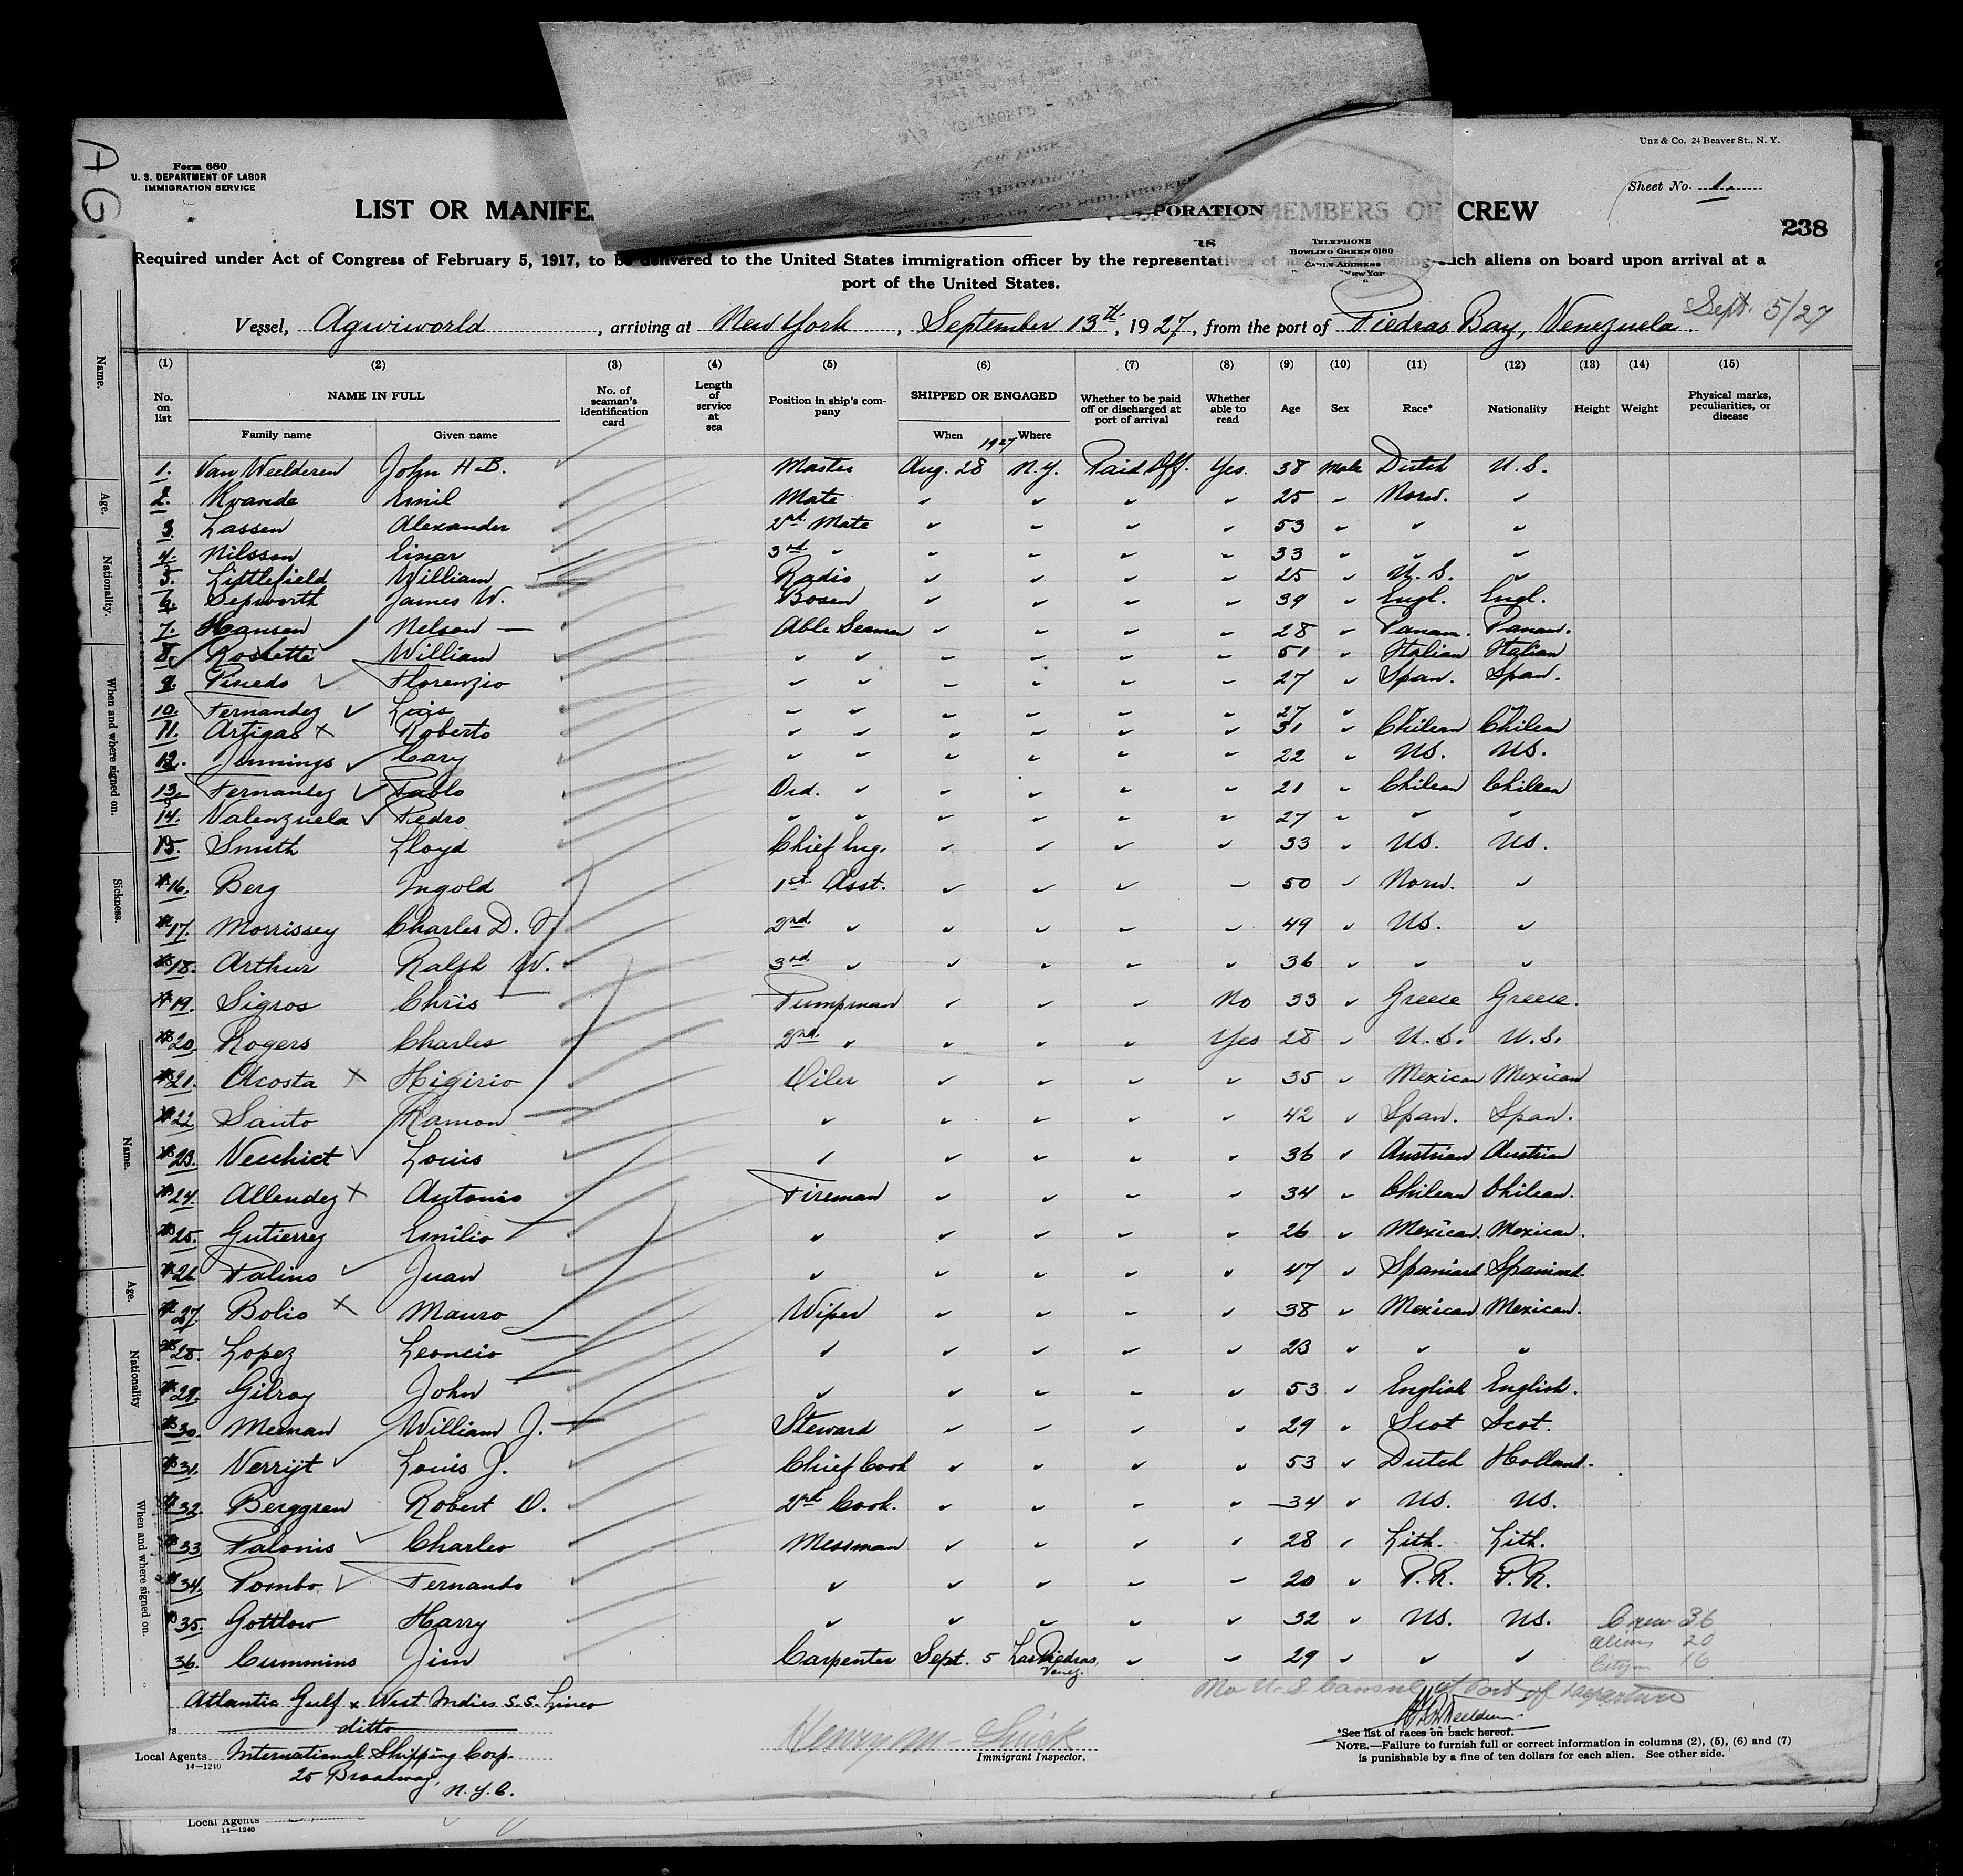 Unz & Co. 24 Beaver St., N. Y.
Form 680
U. S. DEPARTMENT OF LABOR
IMMIGRATION SERVICE
Sheet No. 1.
LIST OR MANIFE PORATION MEMBERS OF CREW
238
TELEPHONE
BOWLING GREEN 6180
CABLE ADDRESS
Required under Act of Congress of February 5, 1917, to be delivered to the United States immigration officer by the representatives of any such aliens on board upon arrival at a
port of the United States.
Vessel, Agwiworld, arriving at New York, September 13th, 1927, from the port of Piedras Bay, Venezuela. Sept. 5/27
(1) (2) (3) (4) (5) (6) (7) (8) (9) (10) (11) (12) (13) (14) (15)
No. on list NAME IN FULL Family name Given name No. of seaman's identification card Length of service at sea Position in ship's company SHIPPED OR ENGAGED When 1927 Where Whether to be paid off or discharged at port of arrival Whether able to read Age Sex Race* Nationality Height Weight Physical marks, peculiarities, or disease
1. Van Weelderen John H.B. Master Aug. 28 N.Y. Paid Off. Yes. 38 Male Dutch U.S.
2. Kvande Emil Mate " " " " 25 " Norw. "
3. Lassen Alexander 2nd Mate " " " " 53 " " "
4. Nilsson Einar 3rd " " " " " 33 " " "
5. Littlefield William Radio " " " " 25 " U.S. "
6. Sepworth James W. Bosen " " " " 39 " Engl. Engl.
7. Hansen Nelson Able Seaman " " " " 28 " Panam. Panam.
8. Rossette William " " " " " " 51 " Italian Italian
9. Pinedo Florenzio " " " " " " 27 " Span. Span.
10. Fernandez Luis " " " " " " 27 " " "
11. Artigas Roberto " " " " " " 31 " Chilean Chilean
12. Jennings Cary " " " " " " 22 " US. US.
13. Fernandez Pablo Ord. " " " " " 21 " Chilean Chilean
14. Valenzuela Pedro " " " " " " 27 " " "
15. Smith Lloyd Chief Eng. " " " " 33 " US. US.
16. Berg Ingold 1st Asst. " " " " 50 " Norw. "
17. Morrissey Charles D. 2nd " " " " " 49 " US. "
18. Arthur Ralph W. 3rd " " " " " 36 " " "
19. Sigros Chris Pumpman " " " No 33 " Greece Greece.
20. Rogers Charles 2nd " " " " Yes 28 " U.S. U.S.
21. Acosta Higirio Oiler " " " " 35 " Mexican Mexican
22. Santo Ramon " " " " " 42 " Span. Span.
23. Vecchiet Louis " " " " " 36 " Austrian Austrian
24. Allendez Antonio Fireman " " " " 34 " Chilean Chilean.
25. Gutierrez Emilio " " " " " 26 " Mexican. Mexican.
26. Palino Juan " " " " " 47 " Spaniard Spaniard.
27. Bolio Mauro Wiper " " " " 38 " Mexican Mexican.
28. Lopez Leoncio " " " " " 23 " " "
29. Gilroy John " " " " " 53 " English English.
30. Meenan William J. Steward " " " " 29 " Scot Scot.
31. Verrijt Louis J. Chief Cook " " " " 53 " Dutch Holland.
32. Berggren Robert O. 2nd Cook. " " " " 34 " US. US.
33. Palonis Charles Messman " " " " 28 " Lith. Lith.
34. Pombo Fernando " " " " " 20 " P.R. P.R.
35. Gottlow Harry " " " " " 32 " US. US.
36. Cummins Jim Carpenter Sept. 5 Las Piedras, Venez. " " 29 " " "
Crew 36
Aliens 20
Citizen 16
No U.S. Consul at Port of Departure
Atlantic Gulf & West Indies S.S. Lines
ditto
Local Agents International Shipping Corp.
25 Broadway,
N.Y.C.
14—1240
Immigrant Inspector.
*See list of races on back hereof.
NOTE.—Failure to furnish full or correct information in columns (2), (5), (6) and (7)
is punishable by a fine of ten dollars for each alien. See other side.
Local Agents
14—1240
Name.
Age.
Nationality.
When and where signed on.
Sickness.
Name.
Age.
Nationality
When and where signed on.
AG